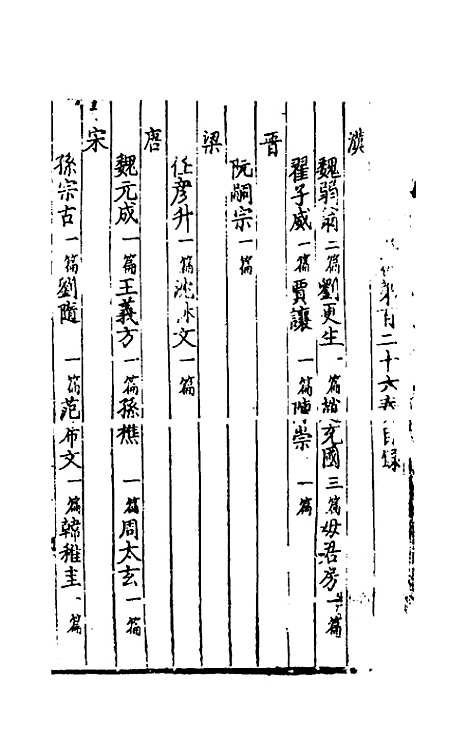 第百二十六卷目錄
漢
魏弱翁二篇劉更生一篇趙充國三篇毋君房一篇
翟子威一篇賈讓一篇陳崇一篇
晉
阮嗣宗一篇
梁
任彥升一篇沈休文一篇
唐
魏元成一篇王義方一篇孫樵一篇周太玄一篇
宋
孫宗古一篇劉隨一篇范希文一篇韓稚圭一篇